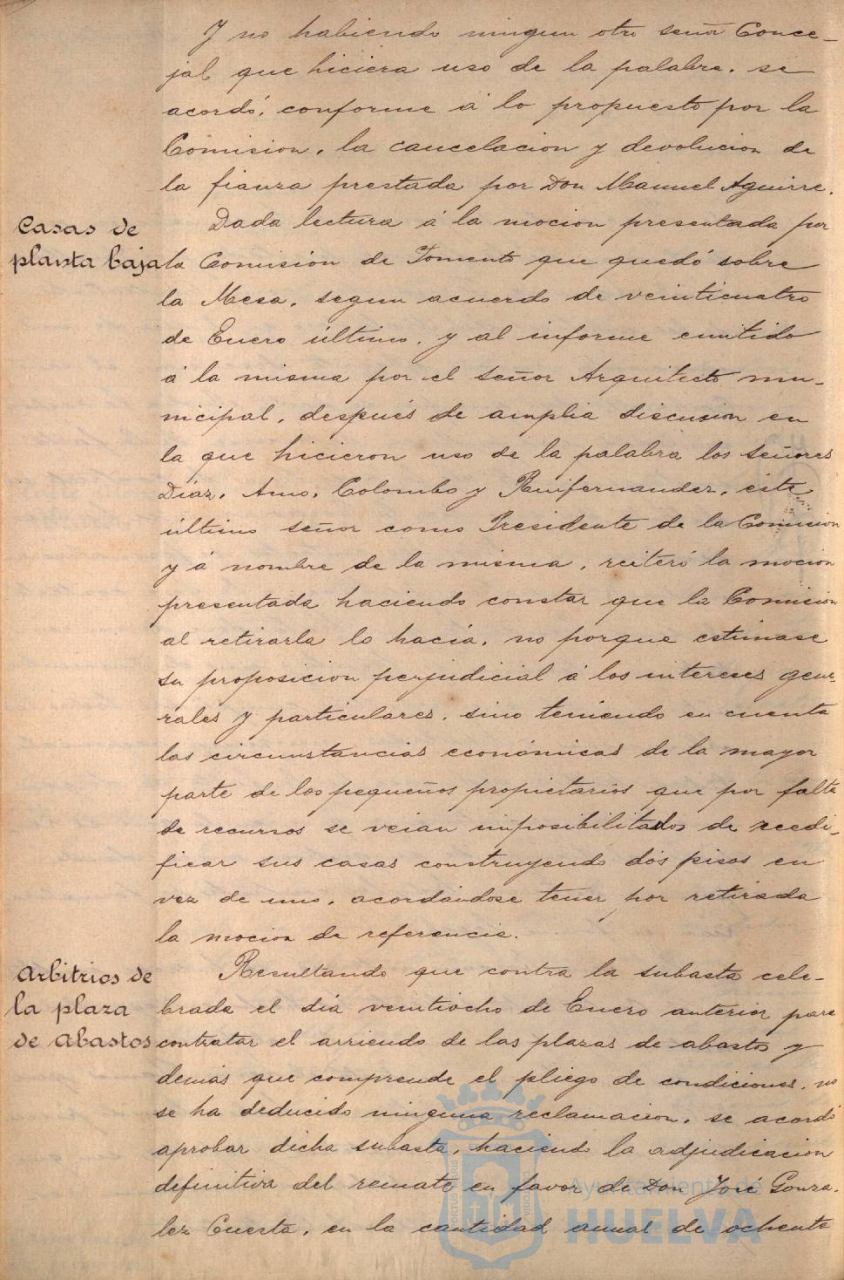 Y no habiendo ningun otro señor Conce-
jal que hiciera uso de la palabra, se
acordó, conforme á lo propuesto por la
Comision, la cancelacion y devolucion de
la fianza prestada por Don Manuel Aguirre.
Casas de
planta baja
Dada lectura á la mocion presentada por
la Comisión de Fomento que quedó sobre
la Mesa, segun acuerdo de veinticuatro
de Enero último, y al informe emitido
á la misma por el señor Arquitecto mu-
nicipal, después de amplia discusion en
la que hicieron uso de la palabra los señores
Diaz, Amo, Colombo y Ruifernandez, este
último señor como Presidente de la Comision
y á nombre de la misma, retiró la mocion
presentada haciendo constar que la Comision
al retirarla lo hacía, no porque estimase
su proposicion perjudicial á los intereses gene-
rales y particulares, sino teniendo en cuenta
las circunstancias económicas de la mayor
parte de los pequeños propietarios que por falta
de recursos se veian imposibilitados de reedi-
ficar sus casas construyendo dos pisos en
vez de uno, acordándose tener por retirada
la mocion de referencia.
Arbitrios de
la plaza
de abastos
Resultando que contra la subasta cele-
brada el día veintiocho de Enero anterior para
contratar el arriendo de las plazas de abastos y
demás que comprende el pliego de condiciones, no
se ha deducido ninguna reclamacion, se acordó
aprobar dicha subasta, haciendo la adjudicacion
definitiva del remate en favor de Don José Gonza-
lez Cuesta, en la cantidad anual de ochenta
Ayuntamiento de
HUELVA